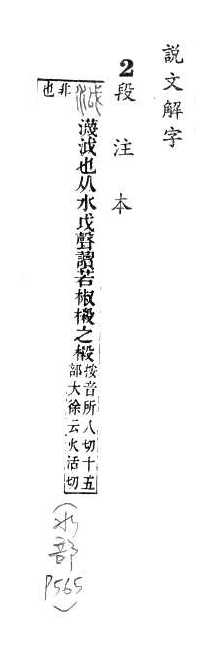 説文解字
2段注本
非
也
泧瀎泧也从水戉聲讀若椒樧之樧
按音所八切十五
部大徐云火活切
(水部
P565)